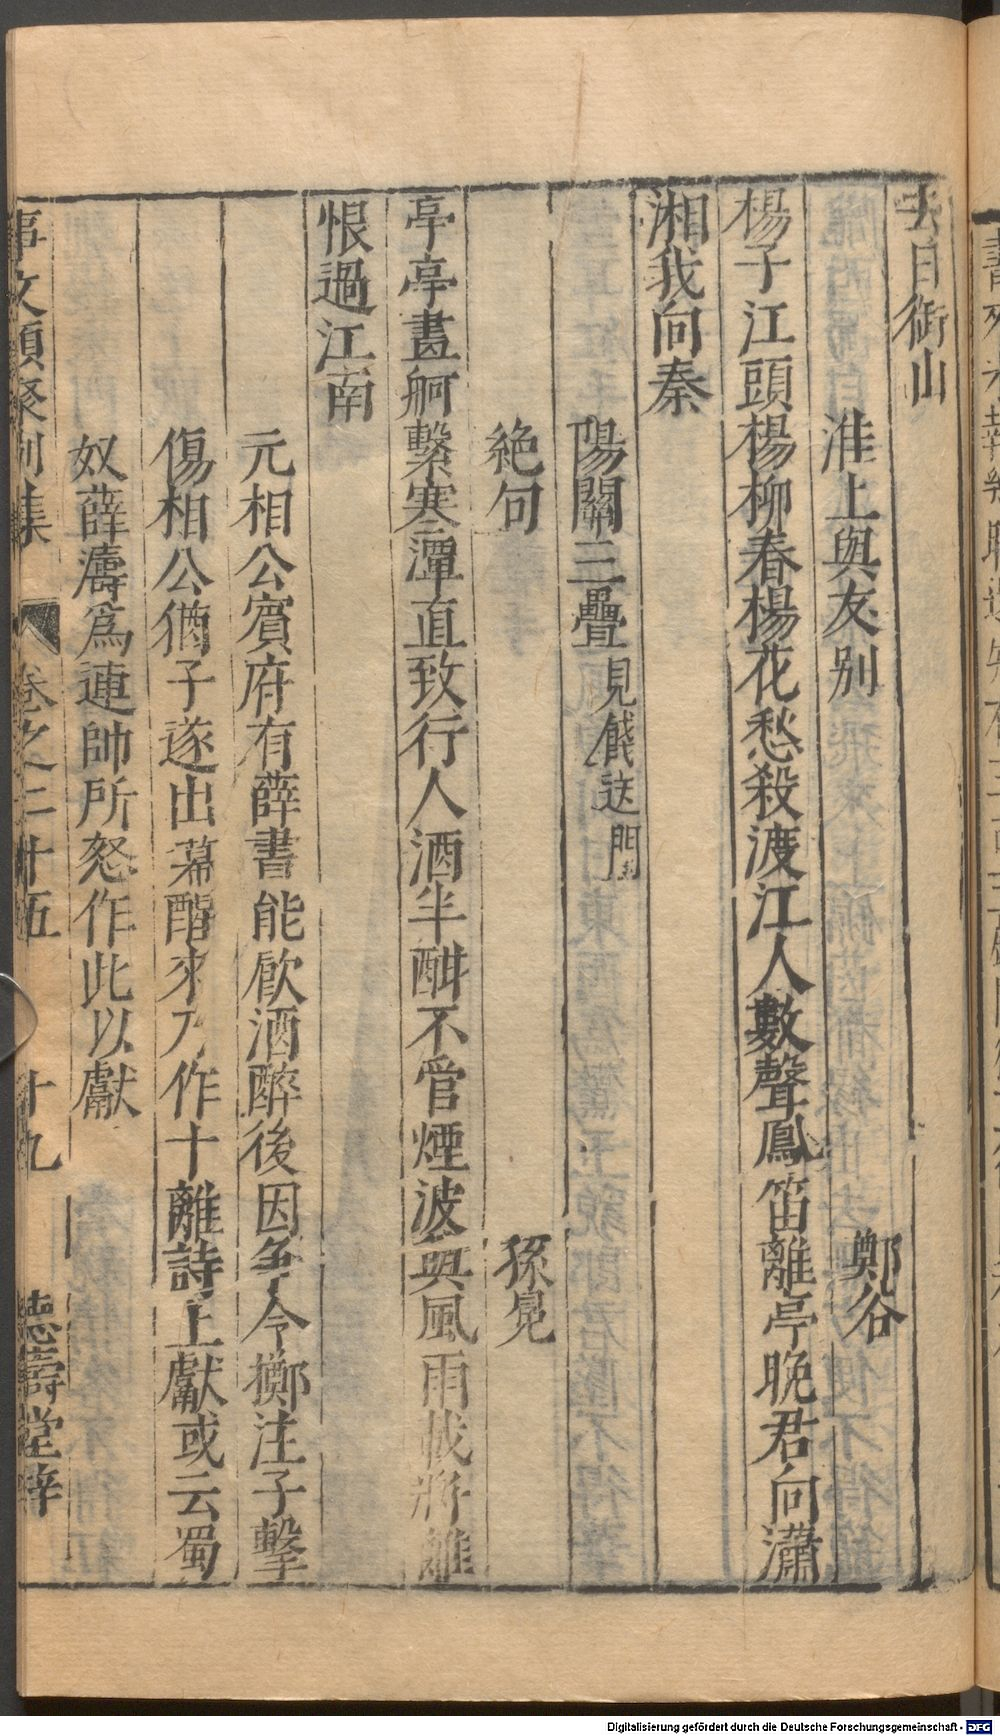 去日銜山
淮上與友别　鄭谷
楊子江頭楊柳春楊花愁殺渡江人數聲鳳笛離亭晚君向瀟
湘我向秦
陽關三疊見餞送門
絶句　孫冕
亭亭畫舸繫寒潭直致行人酒半酣不管煙波與風雨載將離
恨過江南
元相公賓府有薛書能飲酒醉後因争令擲注子擊
傷相公猶子遂出幕醒來乃作十離詩上獻或云蜀
奴薛濤爲連帥所怒作此以獻
事文類聚别集　卷之二十五　十九　德壽堂梓
Digitalisierung gefördert durch die Deutsche Forschungsgemeinschaft - DFG